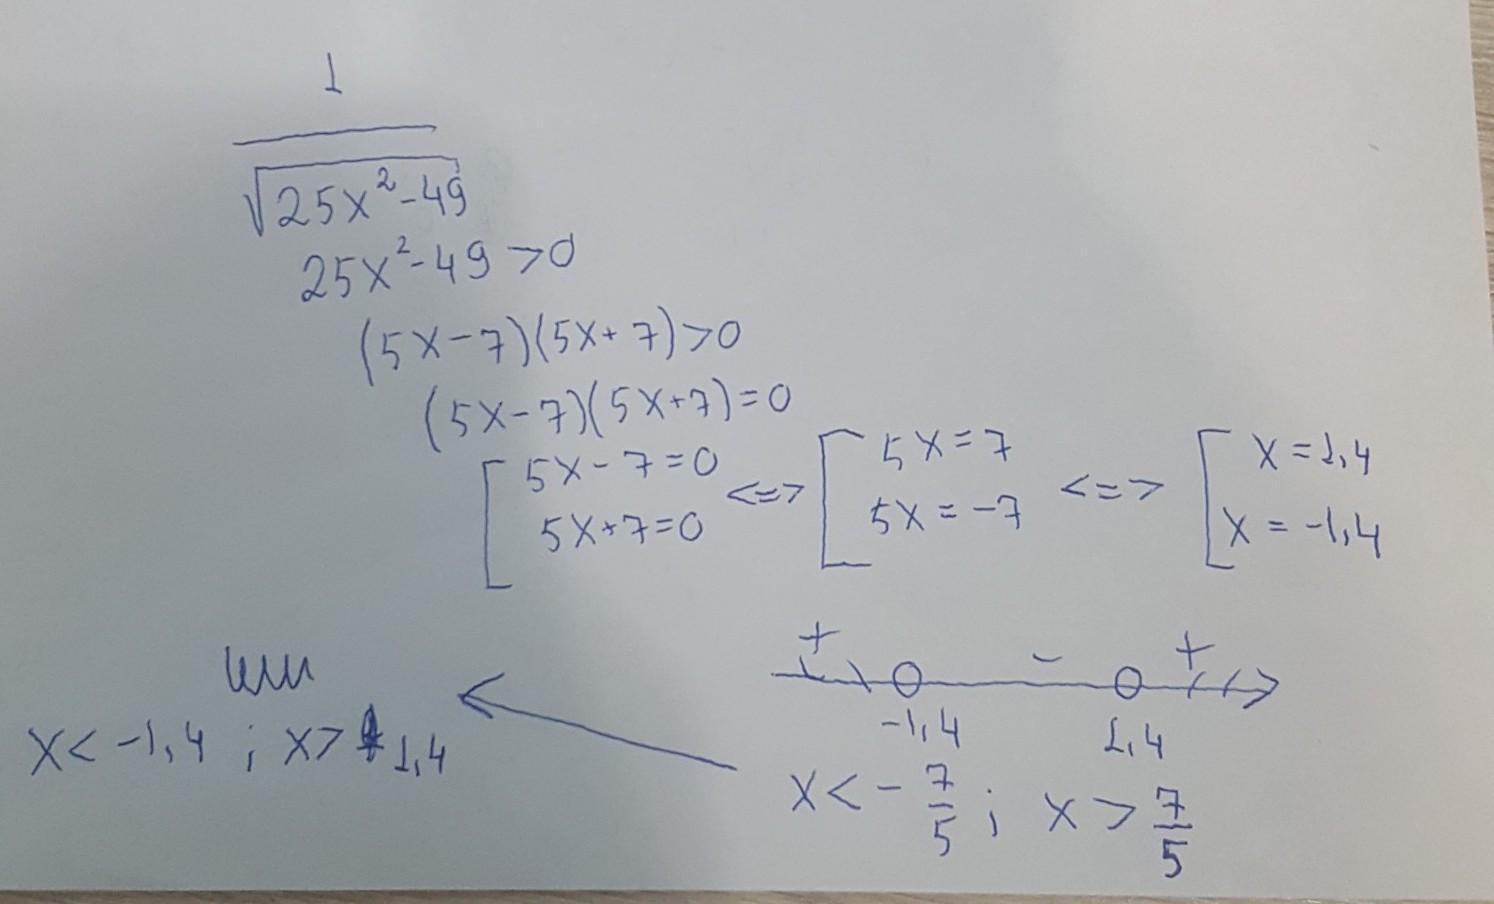 1
√25x²-49
25x²-49 >0
(5x-7)(5x+7)>0
(5x-7)(5x+7)=0
[ 5x-7=0 <=> [ 5x=7 <=> [ x=1,4
5x+7=0 5x=-7 x=-1,4
+ - +
-1,4 1,4
x<-7/5 ; x>7/5
или
x<-1,4 ; x>1,4